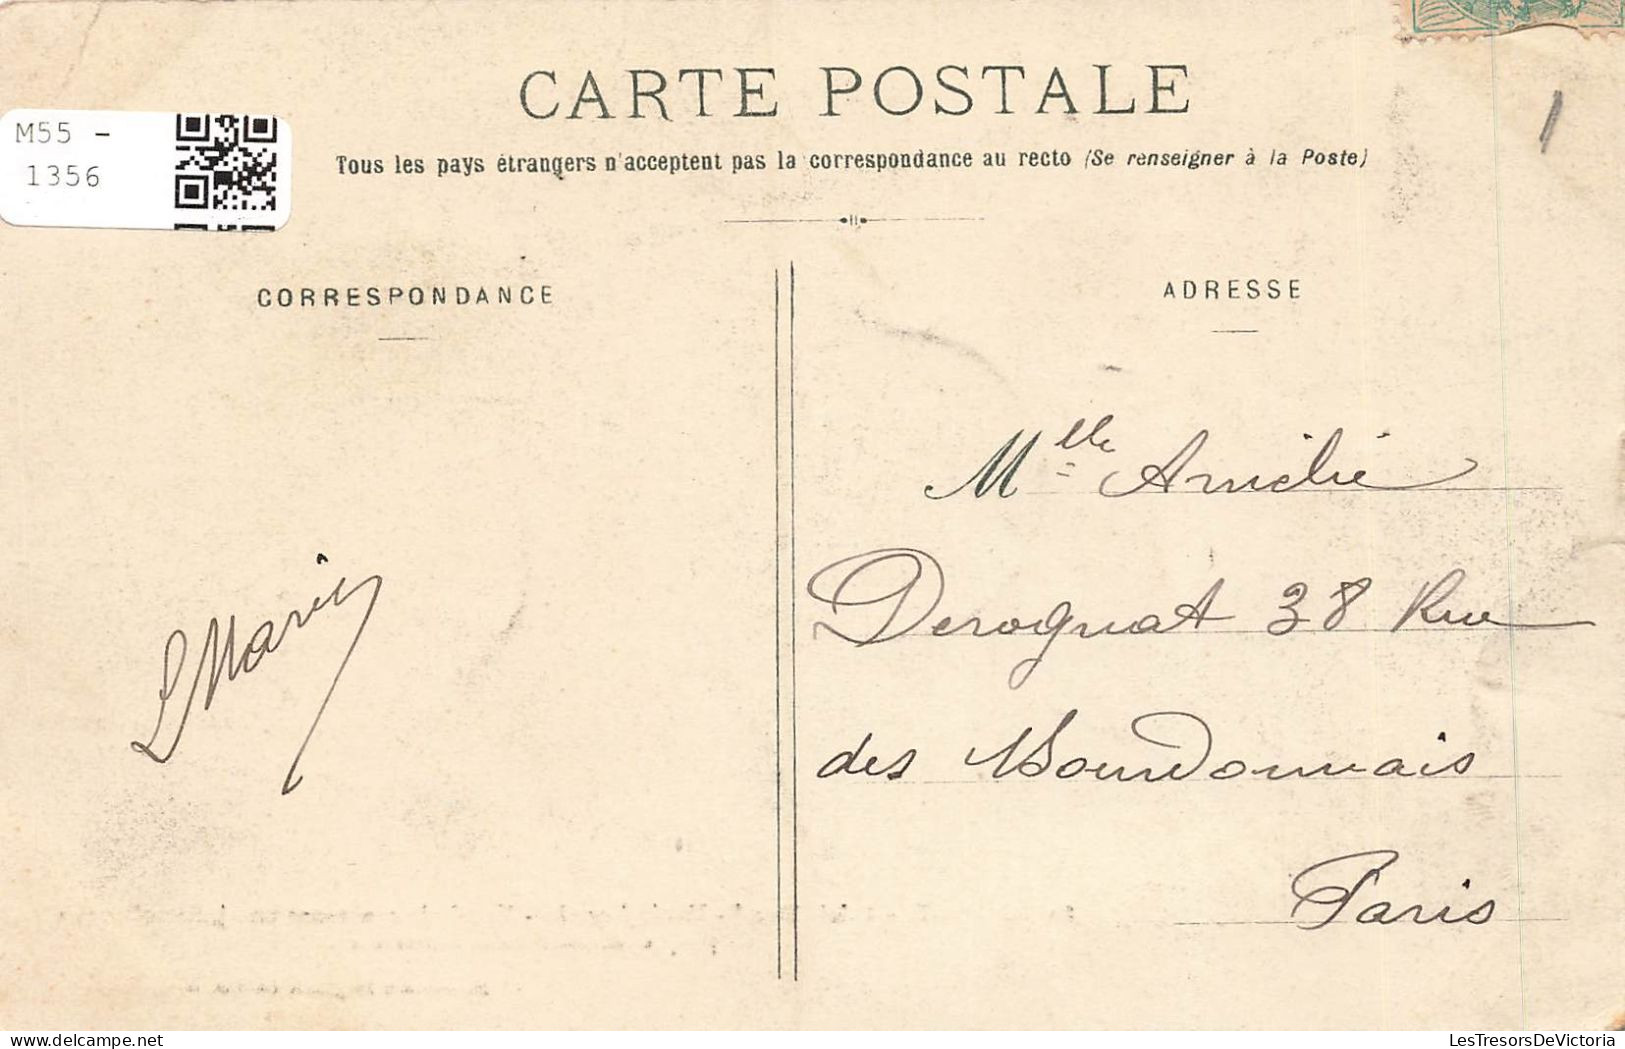 CARTE POSTALE
M55 -
1356
Tous les pays étrangers n'acceptent pas la correspondance au recto (Se renseigner à la Poste)
CORRESPONDANCE
ADRESSE
Mlle Amélie
Derognat 38 Rue
des Bourdonnais
Paris
L Marie
LesTresorsDeVictoria